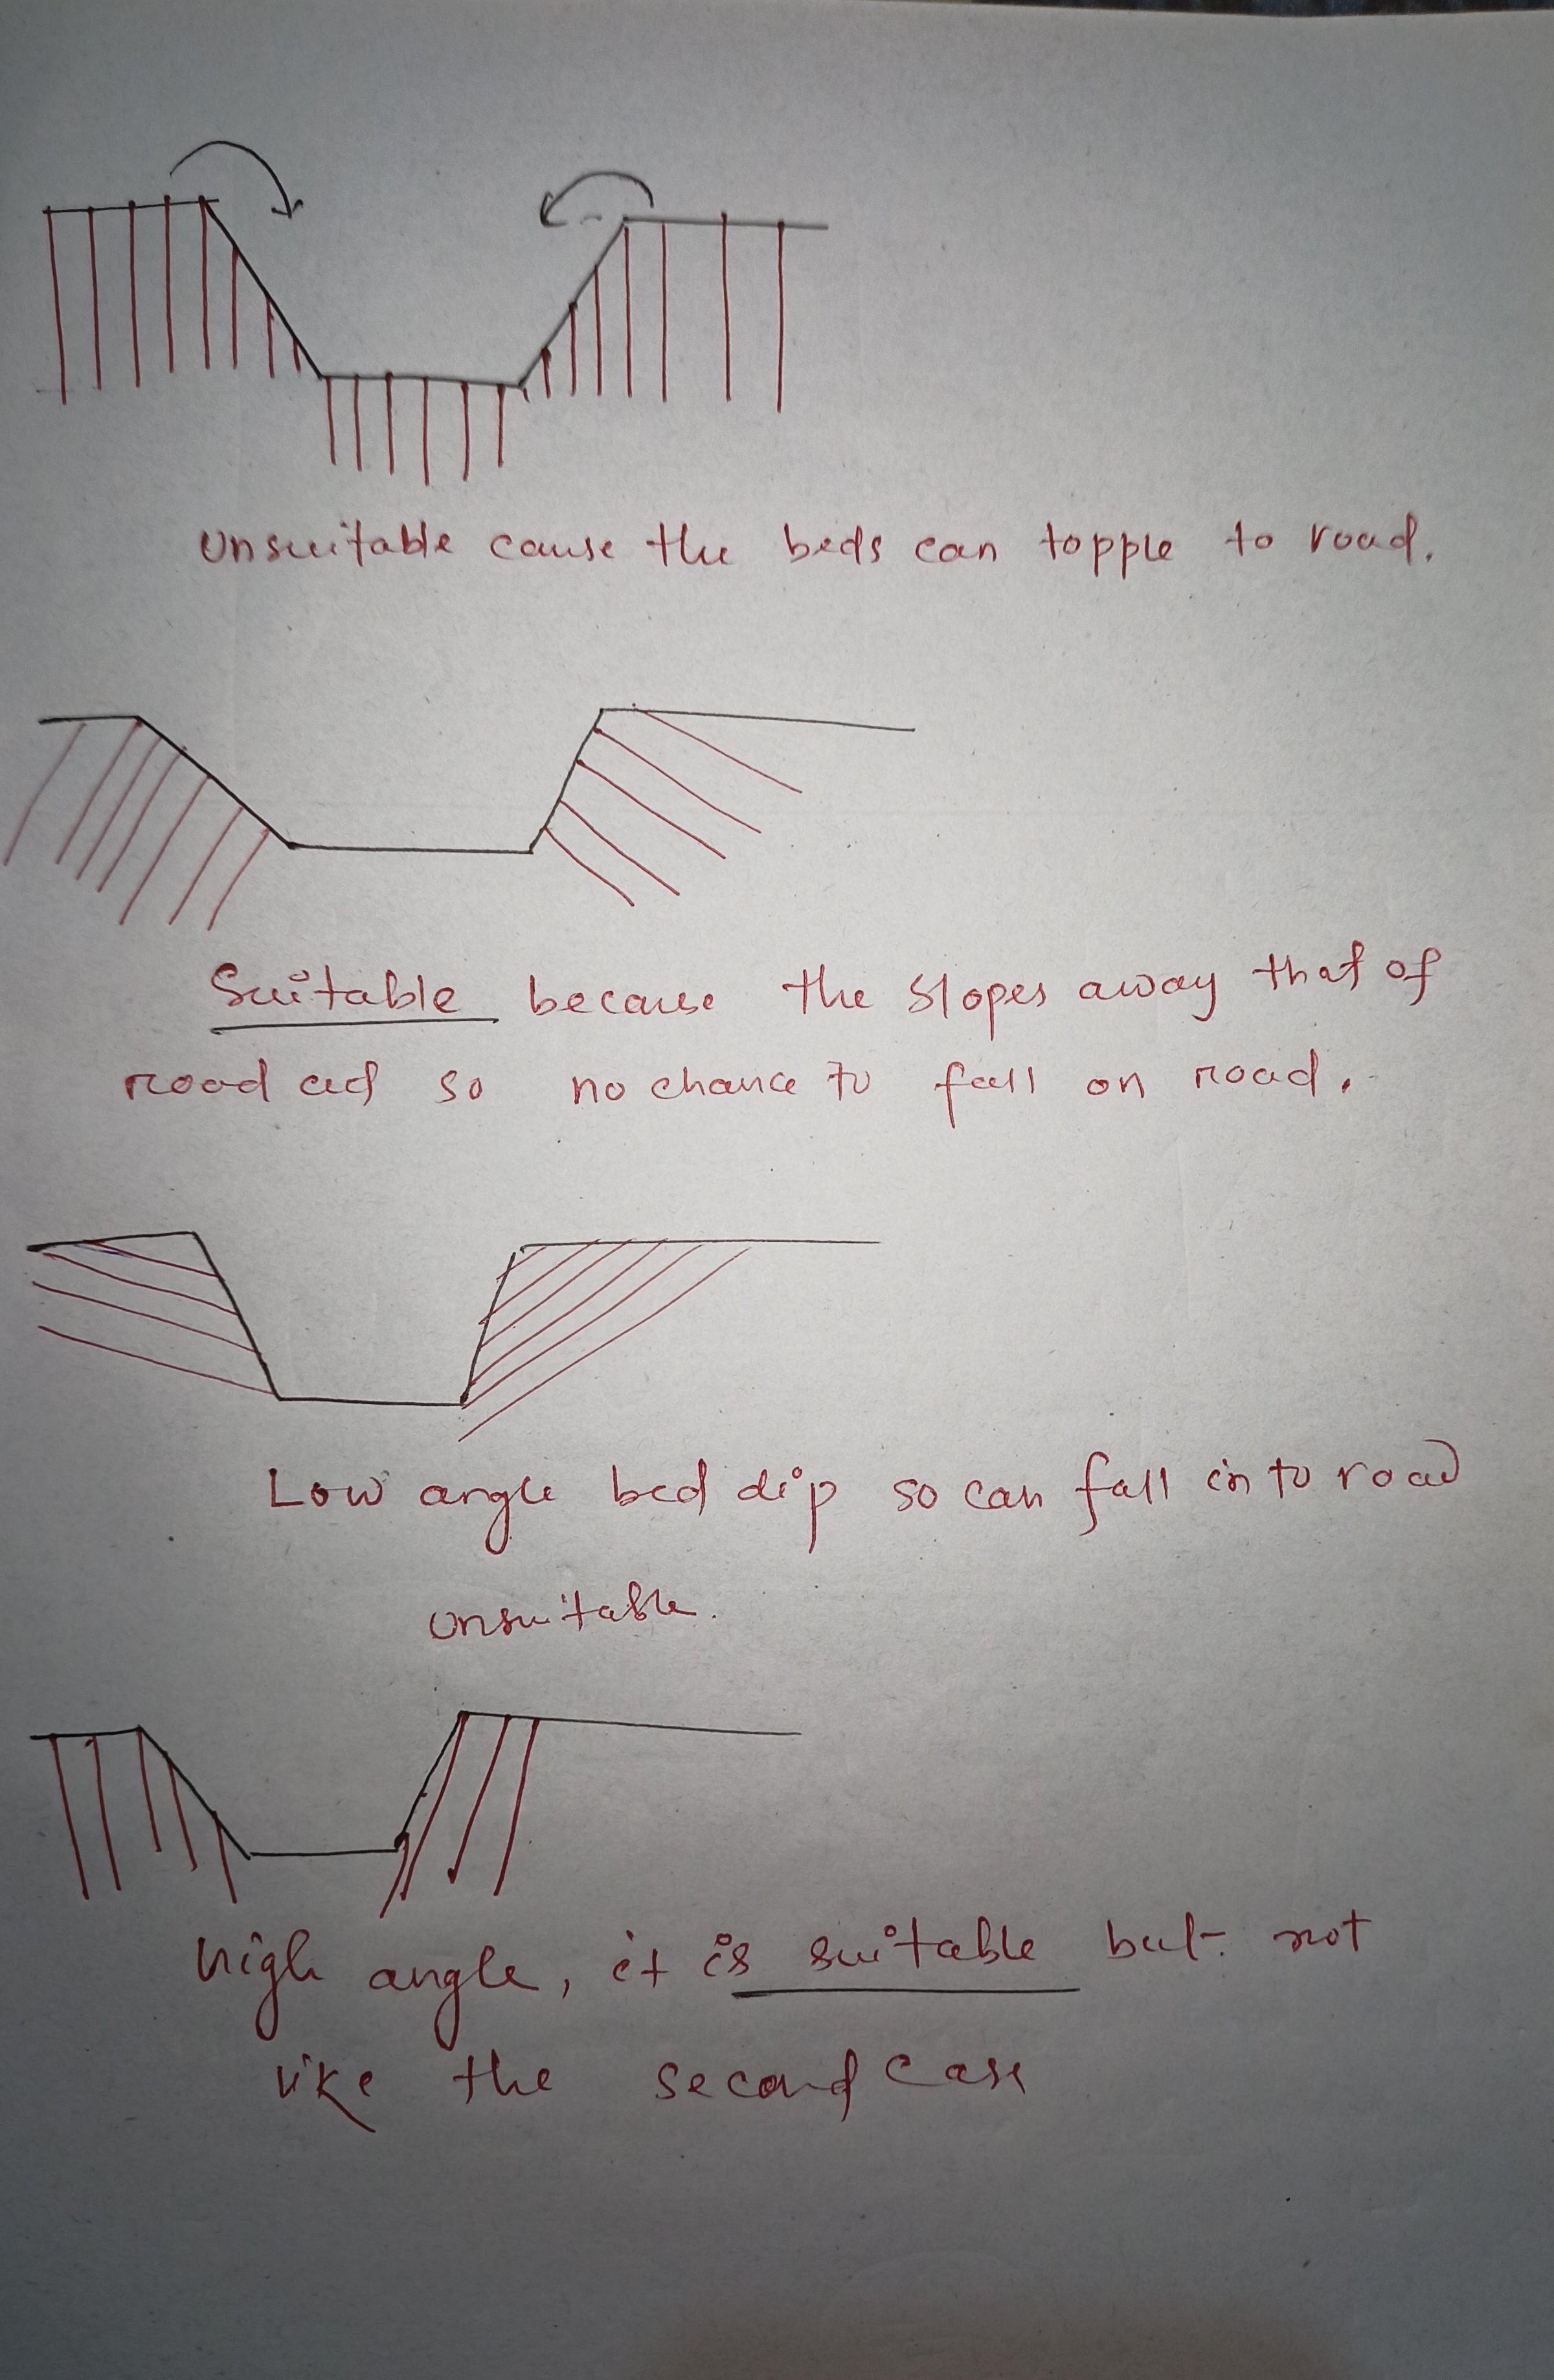 Unsuitable cause the beds can topple to road.
Suitable because the slopes away that of
road and so no chance to fall on road.
Low angle bed dip so can fall into road
unsuitable.
high angle, it is suitable but not
like the second case